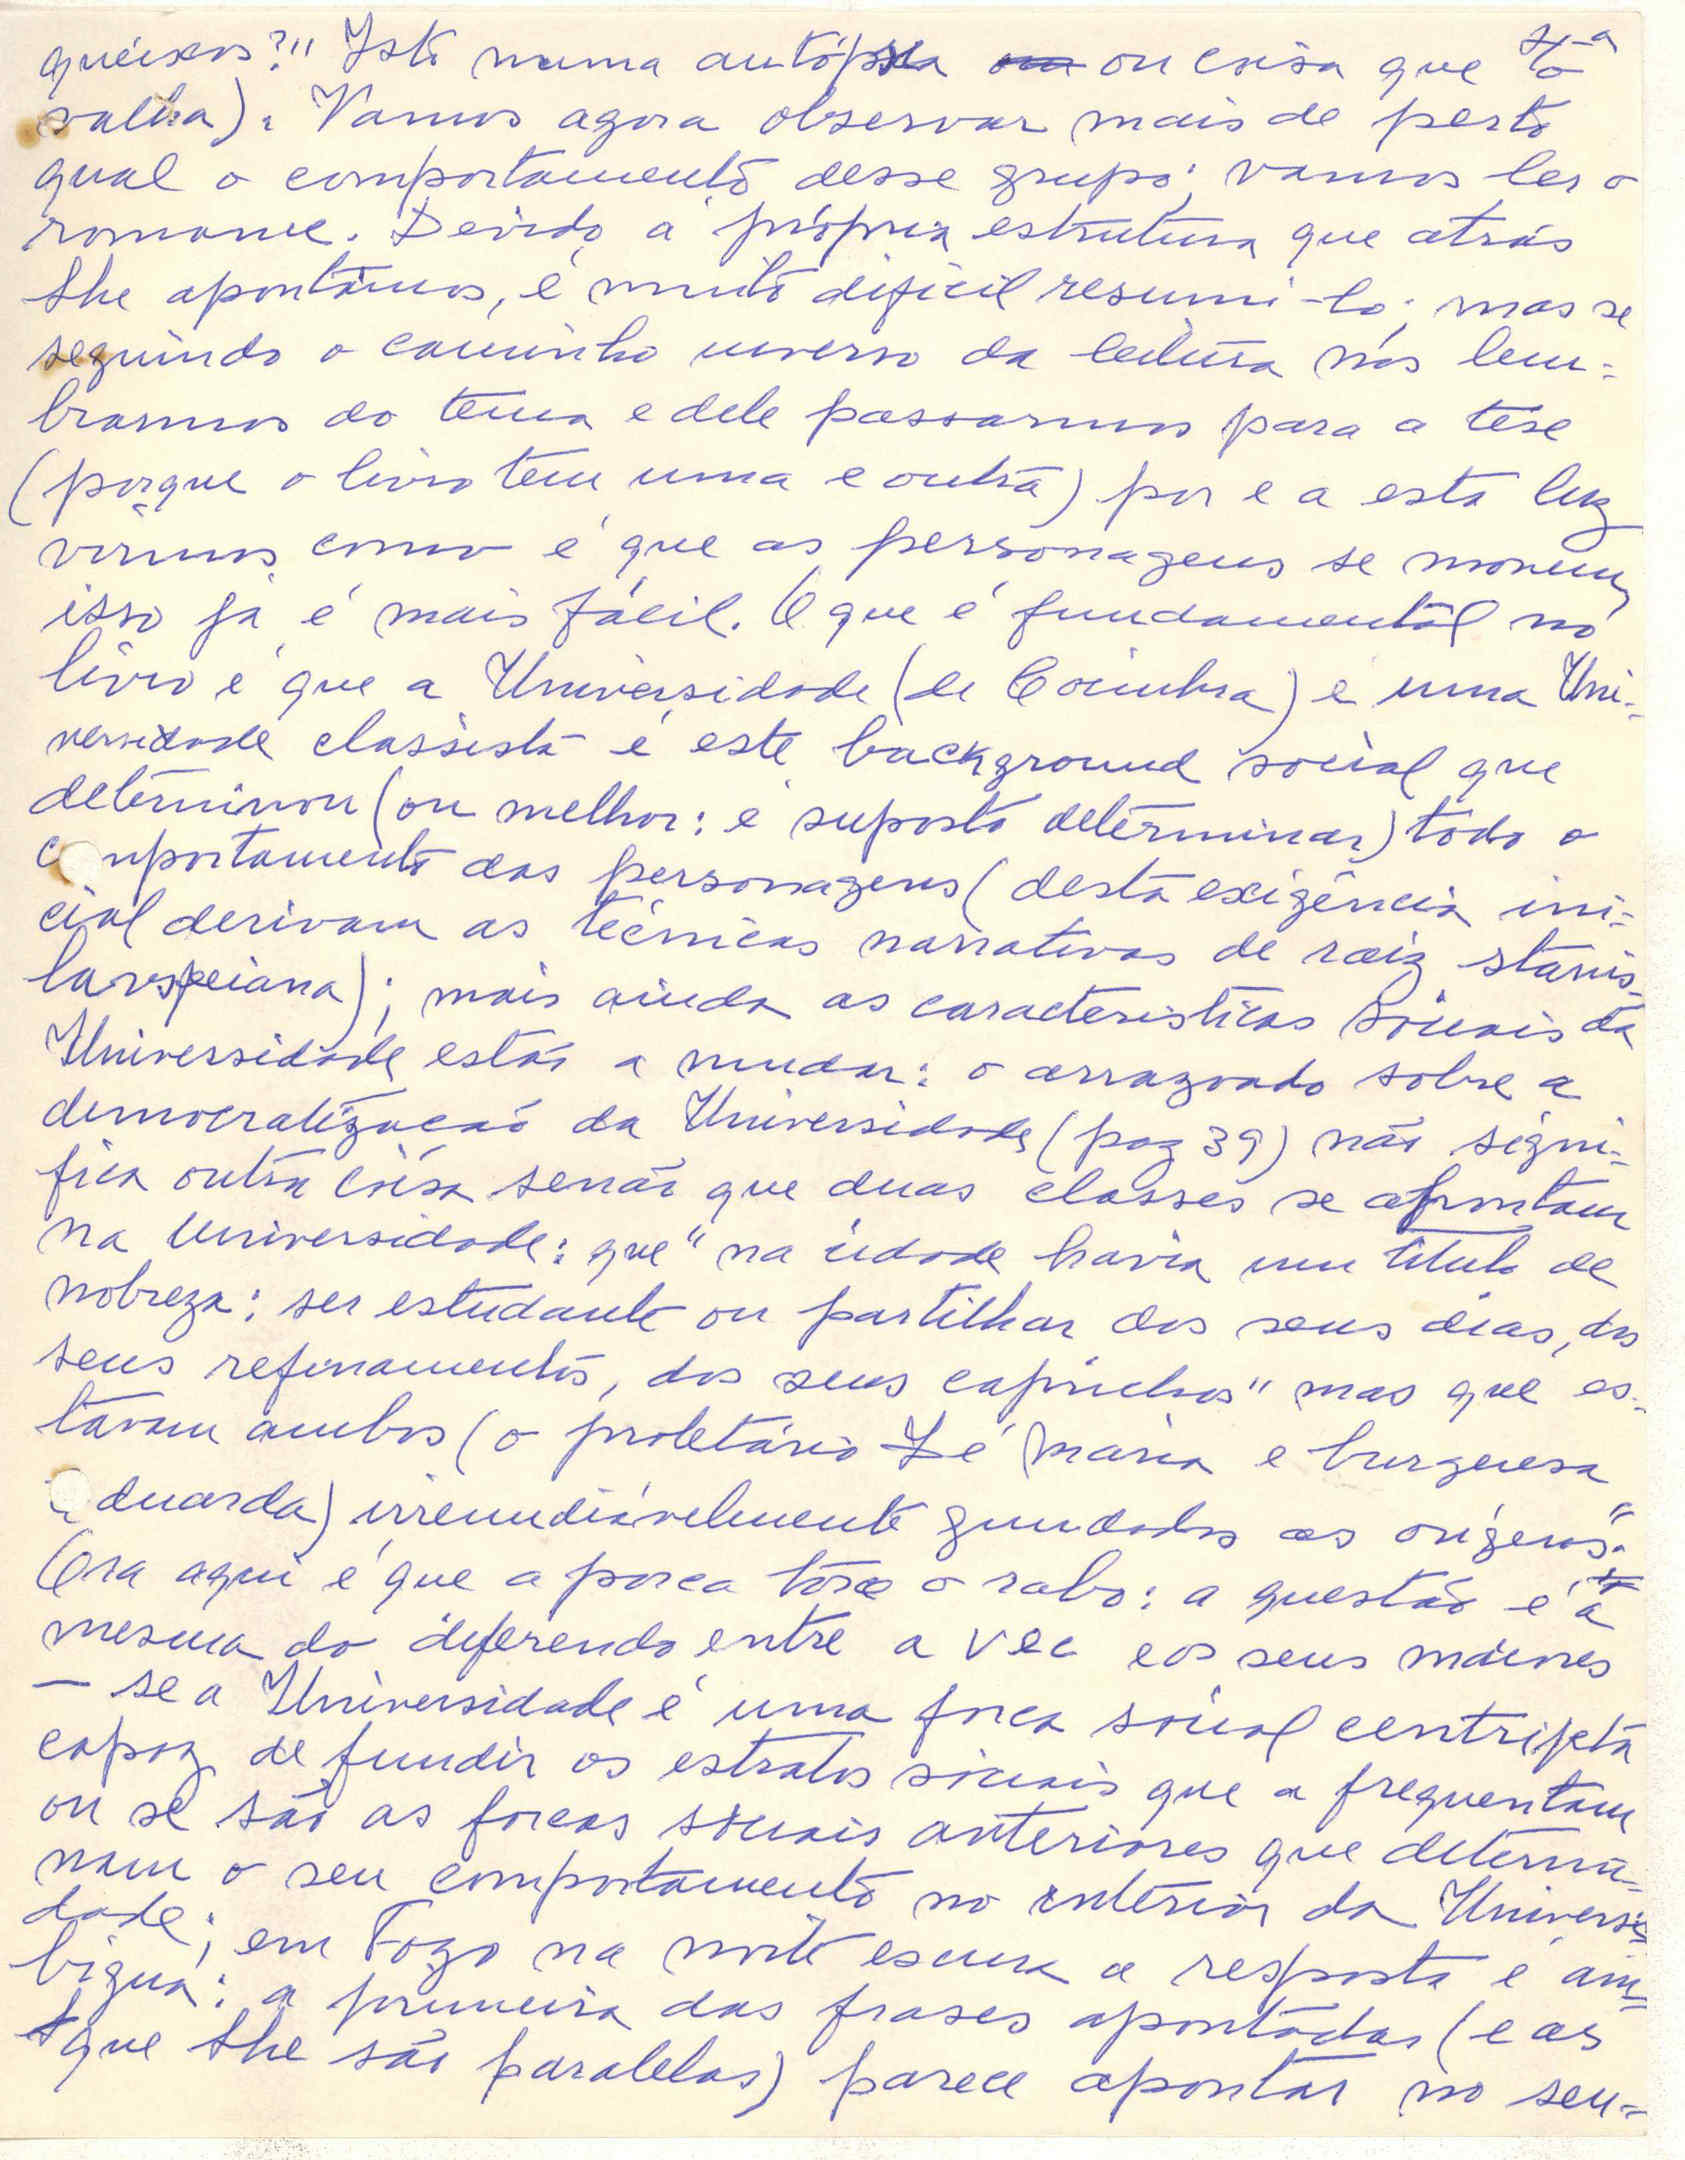 queixos?" Isto numa autópsia ou coisa que a
valha). Vamos agora observar mais de perto
qual o comportamento desse grupo; vamos ler o
romance. Devido à própria estrutura que atrás
lhe apontámos, é muito difícil resumi-lo; mas se
seguindo o caminho inverso da leitura nós lem-
brarmos do tema e dele passarmos para a tese
(porque o livro tem uma e outra) por e a esta luz
virmos como é que as personagens se movem,
isso já é mais fácil. O que é fundamental no
livro é que a Universidade (de Coimbra) é uma Uni-
versidade classista é este background social que
determinou (ou melhor: é suposto determinar) todo o
comportamento das personagens (desta exigência ini-
cial derivam as técnicas narrativas de raiz stanis-
lavskiana); mais ainda as características sociais da
Universidade estão a mudar: o arrazoado sobre a
democratização da Universidade (pag 39) não signi-
fica outra coisa senão que duas classes se afrontam
na Universidade: que "na cidade havia um título de
nobreza: ser estudante ou partilhar dos seus dias, dos
seus refinamentos, dos seus caprichos" mas que es-
tavam ambos (o proletário Zé Maria e burguesa
Eduarda) irremediàvelmente grudados às origens".
Ora aqui é que a porca torce o rabo: a questão é a
mesma do diferendo entre a Vec e os seus maiores
— se a Universidade é uma força social centrípeta
capaz de fundir os estratos sociais que a frequentam
ou se são as forças sociais anteriores que determi-
nam o seu comportamento no interior da Universi-
dade; em Fogo na noite escura a resposta é am-
bígua: a primeira das frases apontadas (e as
que lhe são paralelas) parece apontar no sen-